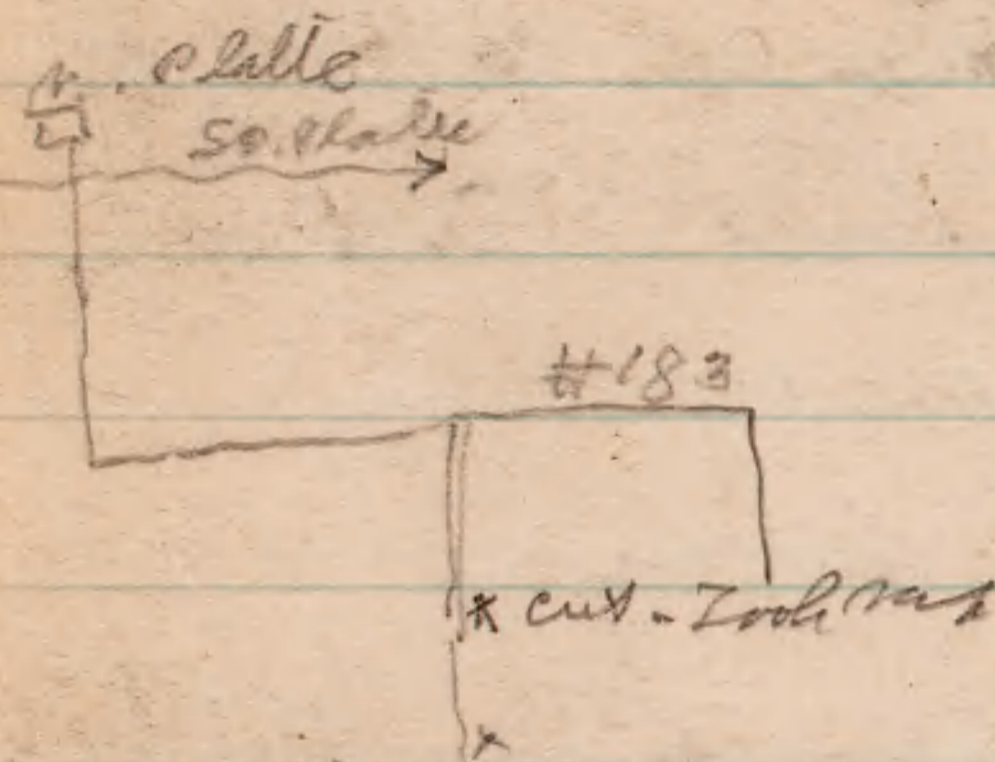 N. Platte
So. Platte
#183
x cut - Took
x